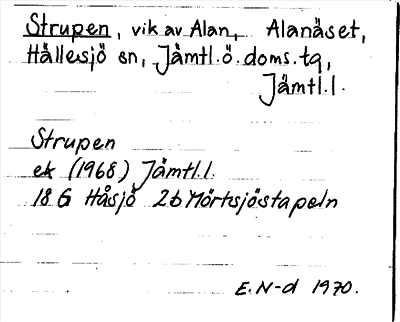 Strupen, vik av Alan, Alanäset,
Hällesjö sn, Jämtl.ö.doms.tg,
Jämtl.l.
Strupen
ek (1968) Jämtl.l.
18 G Håsjö 2b Mörtsjöstapeln
E.N-d 1970.